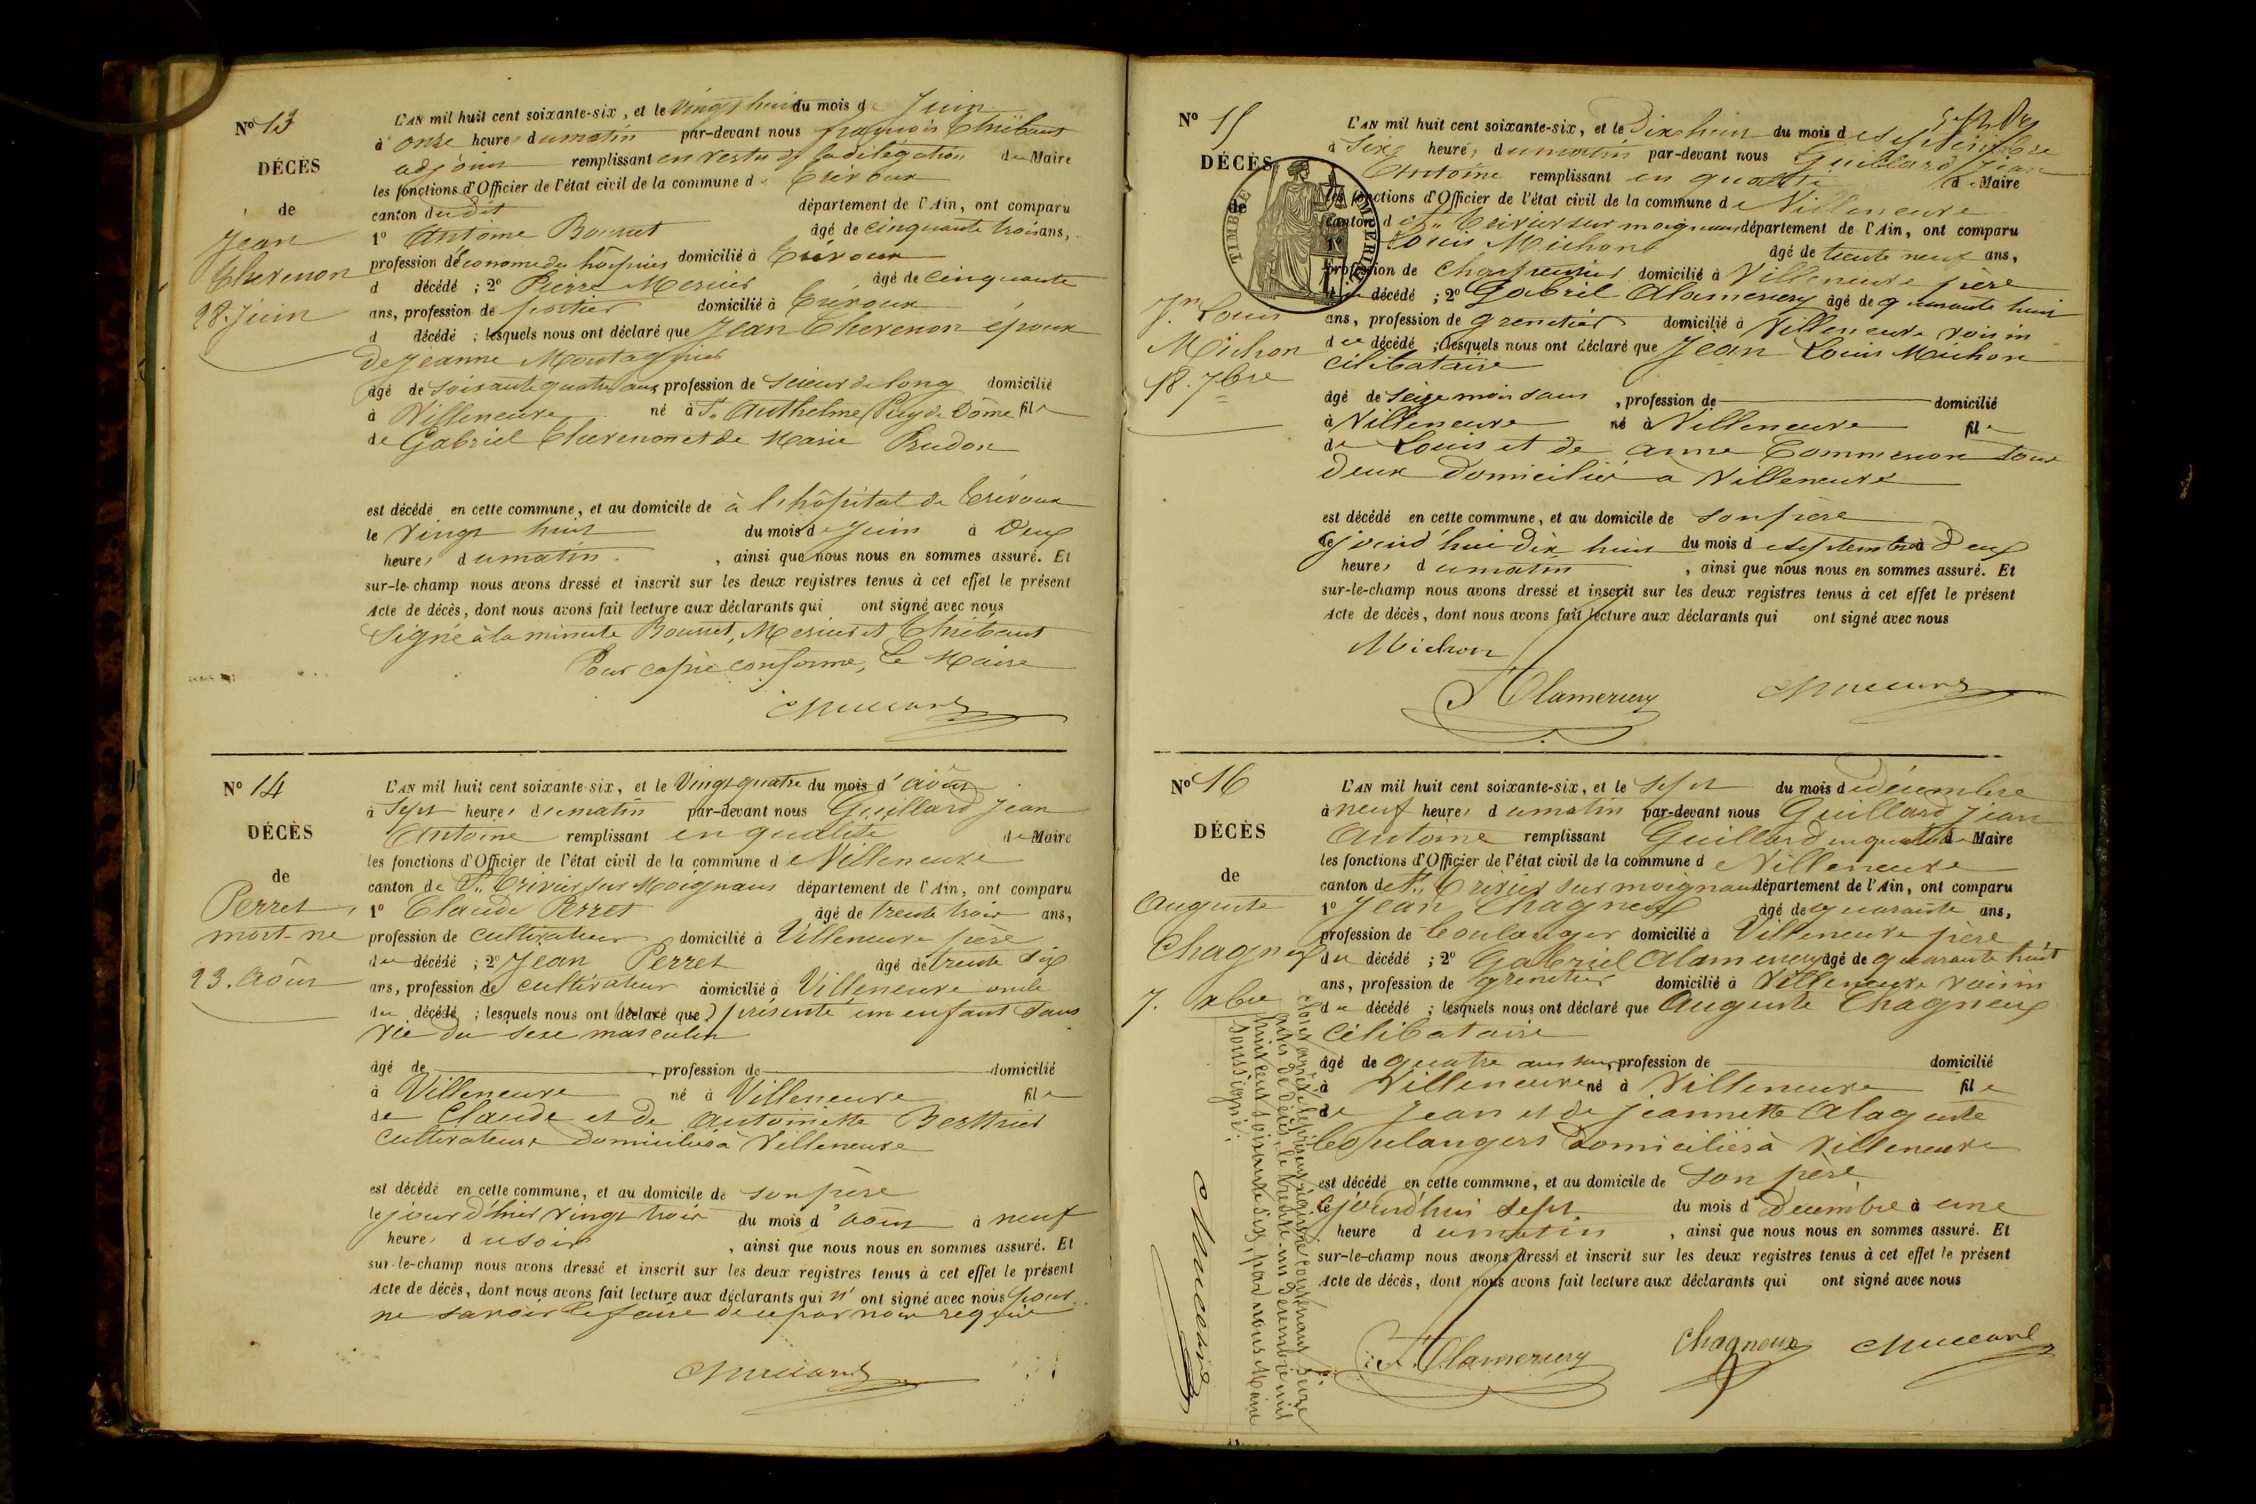 No 13
DÉCÈS
de
Jean
Chevenon
28. Juin
L'AN mil huit cent soixante-six, et le vingt huit du mois de Juin
à onze heures du matin par-devant nous françois Thiébaut
adjoint remplissant en vertu de la délégation du Maire
les fonctions d'Officier de l'état civil de la commune de Trévoux
canton dudit département de l'Ain, ont comparu
1o Antoine Bonnet âgé de cinquante trois ans,
profession d'économe des hospices domicilié à Trévoux
d décédé ; 2o Pierre Mercier âgé de cinquante
ans, profession de portier domicilié à Trévoux
d décédé ; lesquels nous ont déclaré que Jean Chevenon époux
de Jeanne Montagnier
âgé de soixante quatre ans, profession de scieur de long domicilié
à Villeneuve né à St Anthelme (Puy de Dôme fils
de Gabriel Chevenon et de Marie Prudon
est décédé en cette commune, et au domicile de à l'hôpital de Trévoux
le vingt huit du mois de Juin à Deux
heures du matin, ainsi que nous nous en sommes assuré. Et
sur-le-champ nous avons dressé et inscrit sur les deux registres tenus à cet effet le présent
Acte de décès, dont nous avons fait lecture aux déclarants qui ont signé avec nous
Signé à la minute Bonnet, Mercier et Thiébaut
Pour copie conforme, Le Maire
No 14
DÉCÈS
de
Perret
mort-né
23. août
L'AN mil huit cent soixante-six, et le Vingt quatre du mois d'août
à Sept heures du matin par-devant nous Guillard Jean
Antoine remplissant en qualité de Maire
les fonctions d'Officier de l'état civil de la commune de Villeneuve
canton de St. Trivier sur Moignans département de l'Ain, ont comparu
1o Claude Perret âgé de trente trois ans,
profession de cultivateur domicilié à Villeneuve père
du décédé ; 2o Jean Perret âgé de trente six
ans, profession de cultivateur domicilié à Villeneuve oncle
du décédé ; lesquels nous ont (déclaré que) présenté un enfant sans
vie du sexe masculin
âgé de profession de domicilié
à Villeneuve né à Villeneuve fils
de Claude et de Antoinette Berthier
cultivateurs domiciliés à Villeneuve
est décédé en cette commune, et au domicile de son père
le jourd'hier vingt trois du mois d'août à neuf
heures du soir, ainsi que nous nous en sommes assuré. Et
sur-le-champ nous avons dressé et inscrit sur les deux registres tenus à cet effet le présent
Acte de décès, dont nous avons fait lecture aux déclarants qui n'ont signé avec nous pour
ne savoir le faire de ce par nous requis
No 15
DÉCÈS
de
Jn Louis
Michon
18. 7bre
TIMBRE IMPÉRIAL
L'AN mil huit cent soixante-six, et le Dix huit du mois de septembre
à Six heures du matin par-devant nous Guillard Jean
Antoine remplissant en qualité de Maire
les fonctions d'Officier de l'état civil de la commune de Villeneuve
canton de St. Trivier sur moignans département de l'Ain, ont comparu
1o Louis Michon âgé de trente neuf ans,
profession de Charpentier domicilié à Villeneuve père
du décédé ; 2o Gabriel Alamercery âgé de quarante huit
ans, profession de grenetier domicilié à Villeneuve voisin
du décédé ; lesquels nous ont déclaré que Jean Louis Michon
célibataire
âgé de seize mois sans, profession de domicilié
à Villeneuve né à Villeneuve fils
de Louis et de Anne Commerson tous
deux domiciliés à Villeneuve
est décédé en cette commune, et au domicile de son père
le jourd'hui dix huit du mois de septembre à Deux
heures du matin, ainsi que nous nous en sommes assuré. Et
sur-le-champ nous avons dressé et inscrit sur les deux registres tenus à cet effet le présent
Acte de décès, dont nous avons fait lecture aux déclarants qui ont signé avec nous
Michon
Alamercery
No 16
DÉCÈS
de
Auguste
Chagneux
7. xbre
L'AN mil huit cent soixante-six, et le sept du mois de décembre
à neuf heures du matin par-devant nous Guillard Jean
Antoine remplissant Guillard en qualité de Maire
les fonctions d'Officier de l'état civil de la commune de Villeneuve
canton de St. Trivier sur moignans département de l'Ain, ont comparu
1o Jean Chagneux âgé de quarante ans,
profession de boulanger domicilié à Villeneuve père
du décédé ; 2o Gabriel Alamercery âgé de quarante huit
ans, profession de grenetier domicilié à Villeneuve voisin
du décédé ; lesquels nous ont déclaré que Auguste Chagneux
célibataire
âgé de quatre ans sans, profession de domicilié
à Villeneuve né à Villeneuve fils
de Jean et de Jeannette Alaguste
boulangers domiciliés à Villeneuve
est décédé en cette commune, et au domicile de son père
le jourd'hui sept du mois de Décembre à une
heure du matin, ainsi que nous nous en sommes assuré. Et
sur-le-champ nous avons dressé et inscrit sur les deux registres tenus à cet effet le présent
Acte de décès, dont nous avons fait lecture aux déclarants qui ont signé avec nous
Alamercery Chagneux
Clos et arrêté le présent registre contenant seize
actes de décès, le trente-un décembre mil
huit cent soixante six, par nous Maire
soussigné.